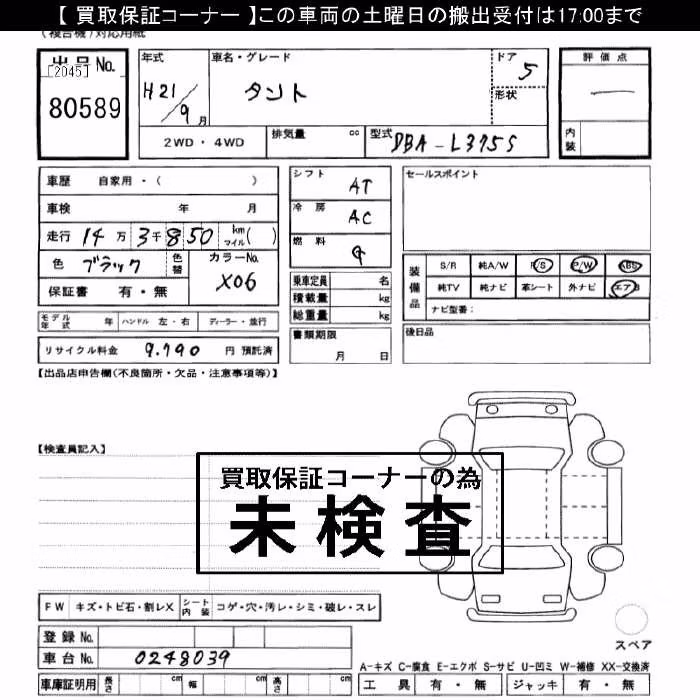 【 買取保証コーナー 】この車両の土曜日の搬出受付は17:00まで
(複合機)対応用紙
出品No.
[2045]
80589
年式 H21/9月
車名・グレード タント
ドア 5
形状
評価点 —
内装
2WD・4WD
排気量 cc
型式 DBA-L375S
車歴 自家用・( )
車検 年 月
走行 14万3千850 km マイル( )
色 ブラック 色替 カラーNo. X06
保証書 有・無
シフト AT
冷房 AC
燃料 G
乗車定員 名
積載量 kg
総重量 kg
書類期限 月 日
セールスポイント
装備品
S/R 純A/W P/S P/W ABS
純TV 純ナビ 革シート 外ナビ エアB
ナビ型番:
後日品
モデル年式 年 ハンドル 左・右 ディーラー・並行
リサイクル料金 9.790 円 預託済
【出品店申告欄(不良箇所・欠品・注意事項等)】
【検査員記入】
買取保証コーナーの為
未検査
FW キズ・トビ石・割レX シート内装 コゲ・穴・汚レ・シミ・破レ・スレ
登録No.
車台No. 0248039
スペア
A-キズ C-腐食 E-エクボ S-サビ U-凹ミ W-補修 XX-交換済
車庫証明用 長さ cm 幅 cm 高さ cm
工具 有・無 ジャッキ 有・無